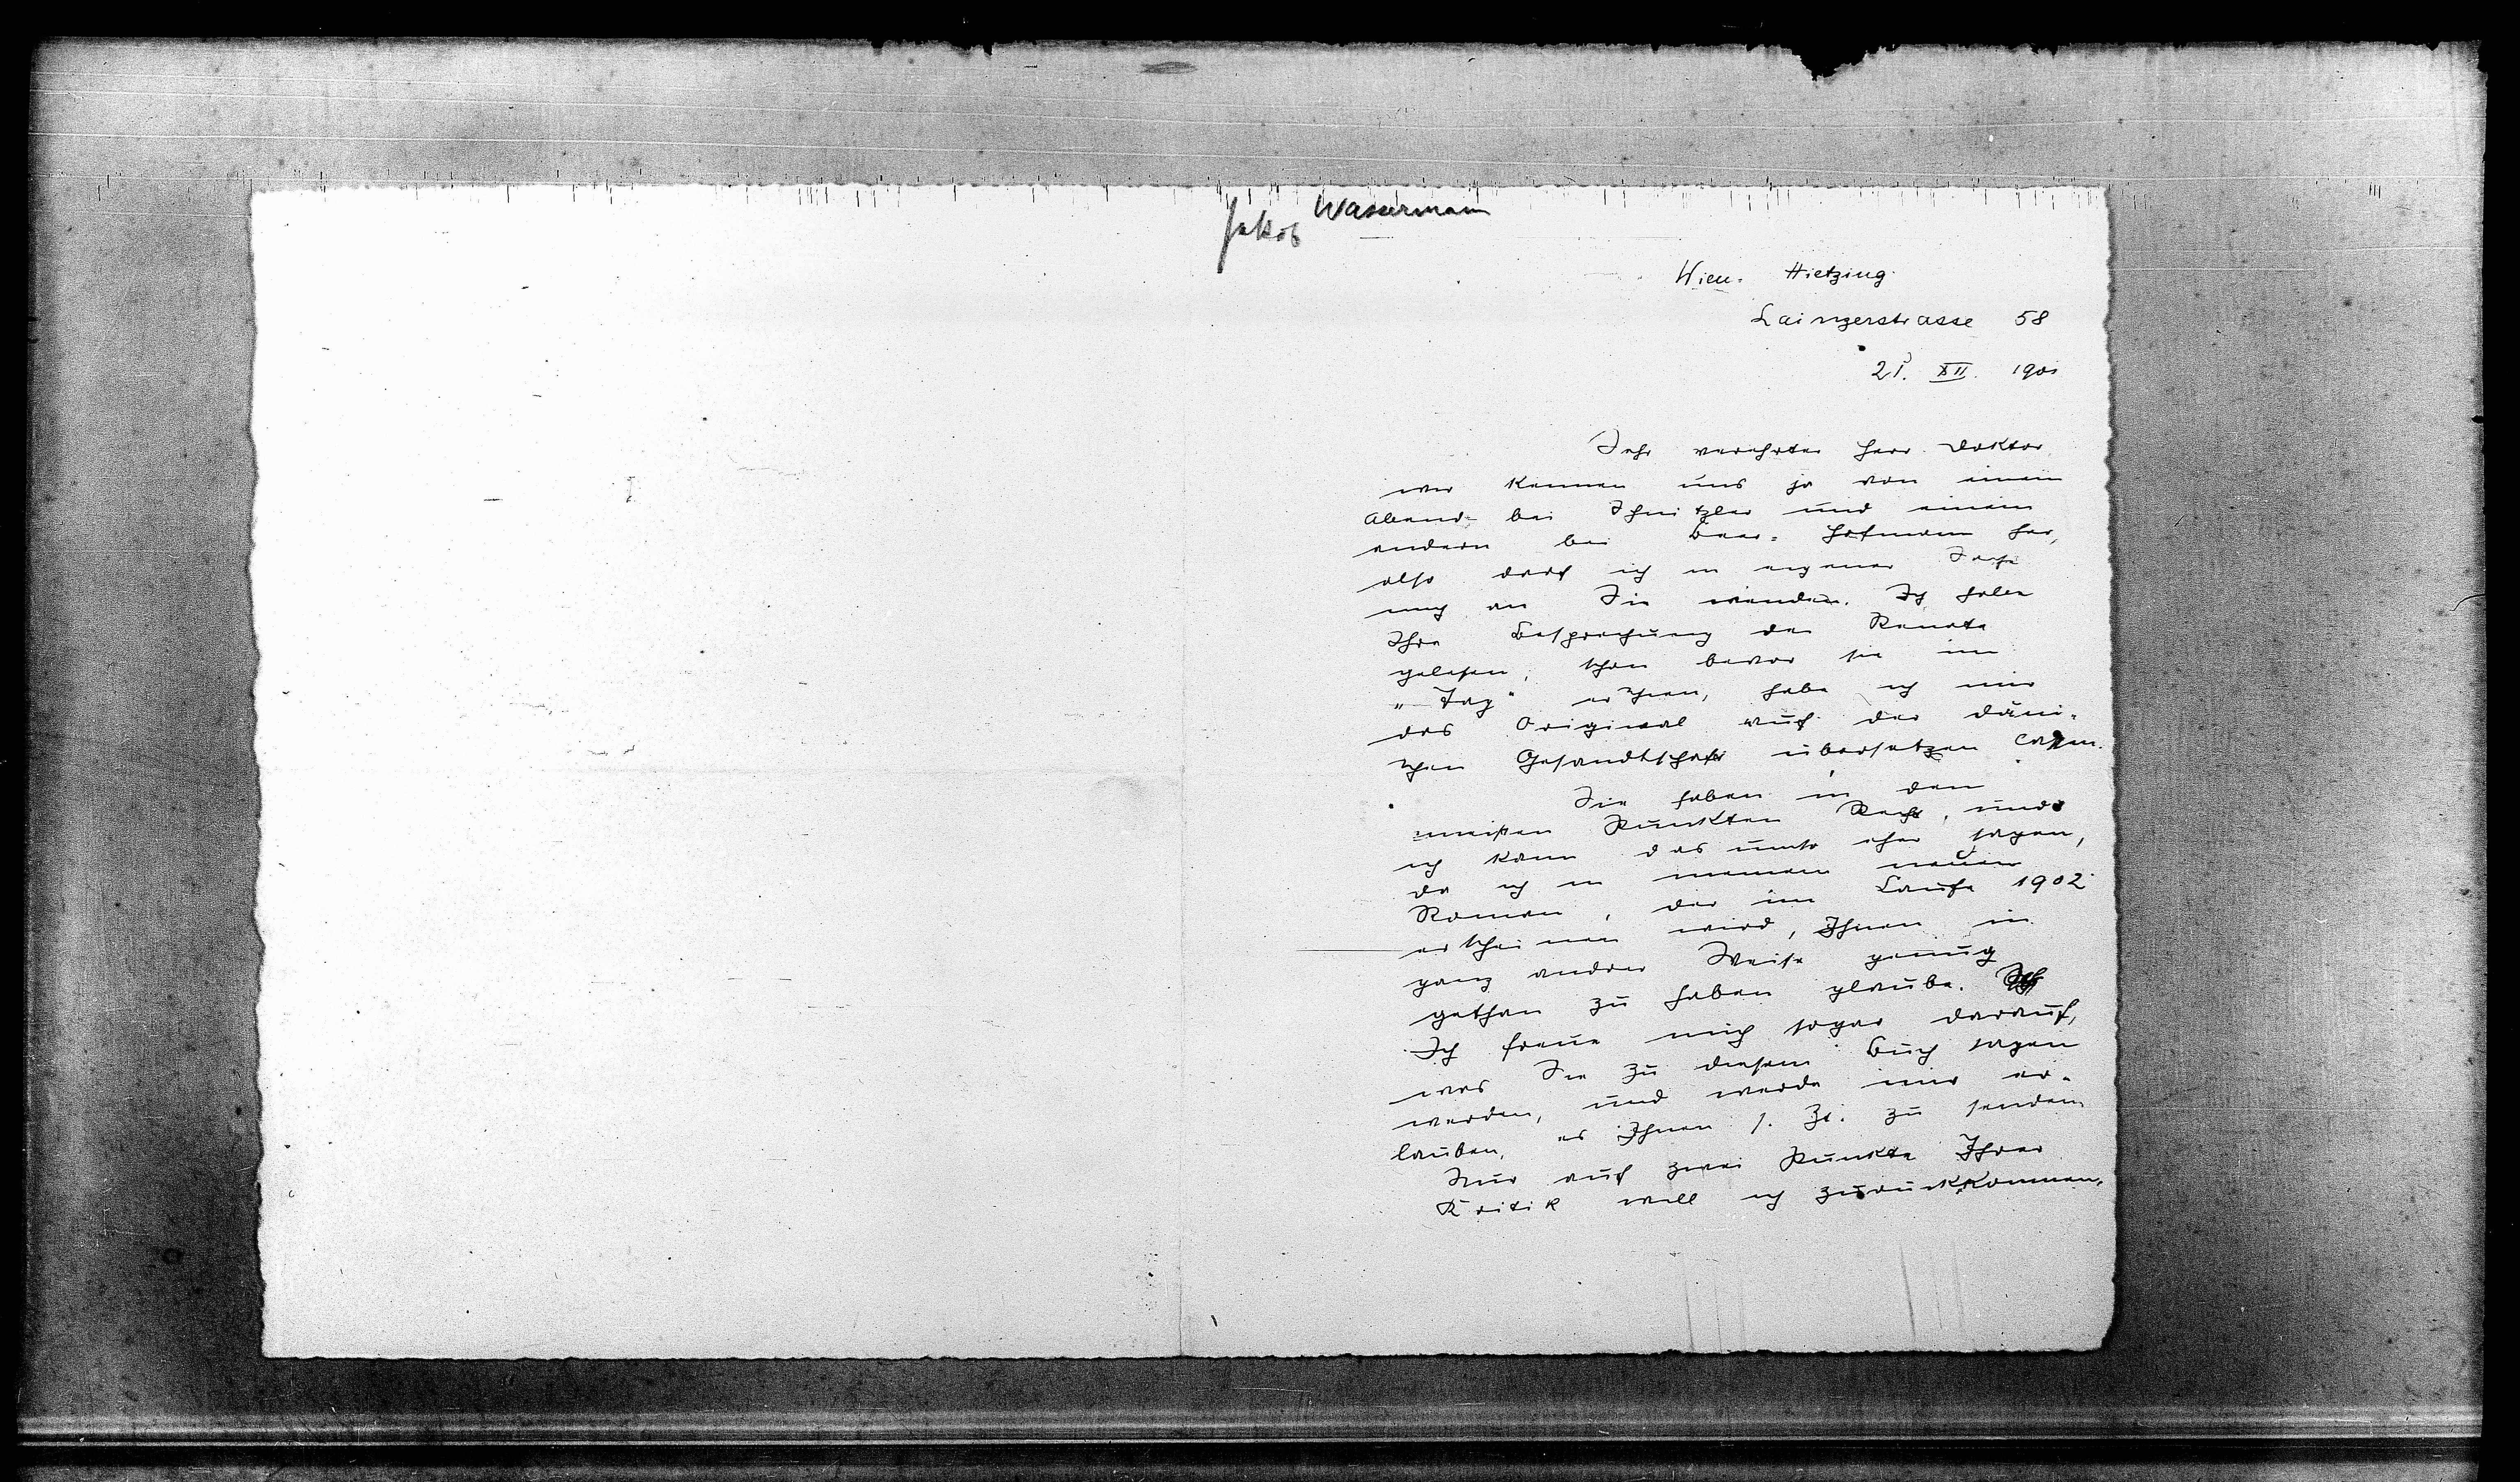 Jakob Wassermann
Wien-Hietzing.
Lainzerstrasse 58
21. XII. 1901
Sehr verehrter Herr Doktor,
wir kennen uns ja von einem
Abend bei Schnitzler und einem
andern bei Beer-Hofmann her,
also darf ich in eigener Sache
mich an Sie wenden. Ich habe
Ihre Besprechung der Renate
gelesen; schon bevor sie im
„Tag“ erschien, habe ich mir
das Original auf der däni-
schen Gesandtschaft übersetzen lassen.
Sie haben in den
meisten Punkten Recht, und
ich kann das umso eher sagen,
da ich in meinem neuen
Roman, der im Laufe 1902
erscheinen wird, Ihnen in
ganz andrer Weise genug
gethan zu haben glaube.
Ich freue mich sogar darauf,
was Sie zu diesem Buch sagen
werden, und werde mir er-
lauben, es Ihnen s. Zt. zu senden.
Nur auf zwei Punkte Ihrer
Kritik will ich zurückkommen.